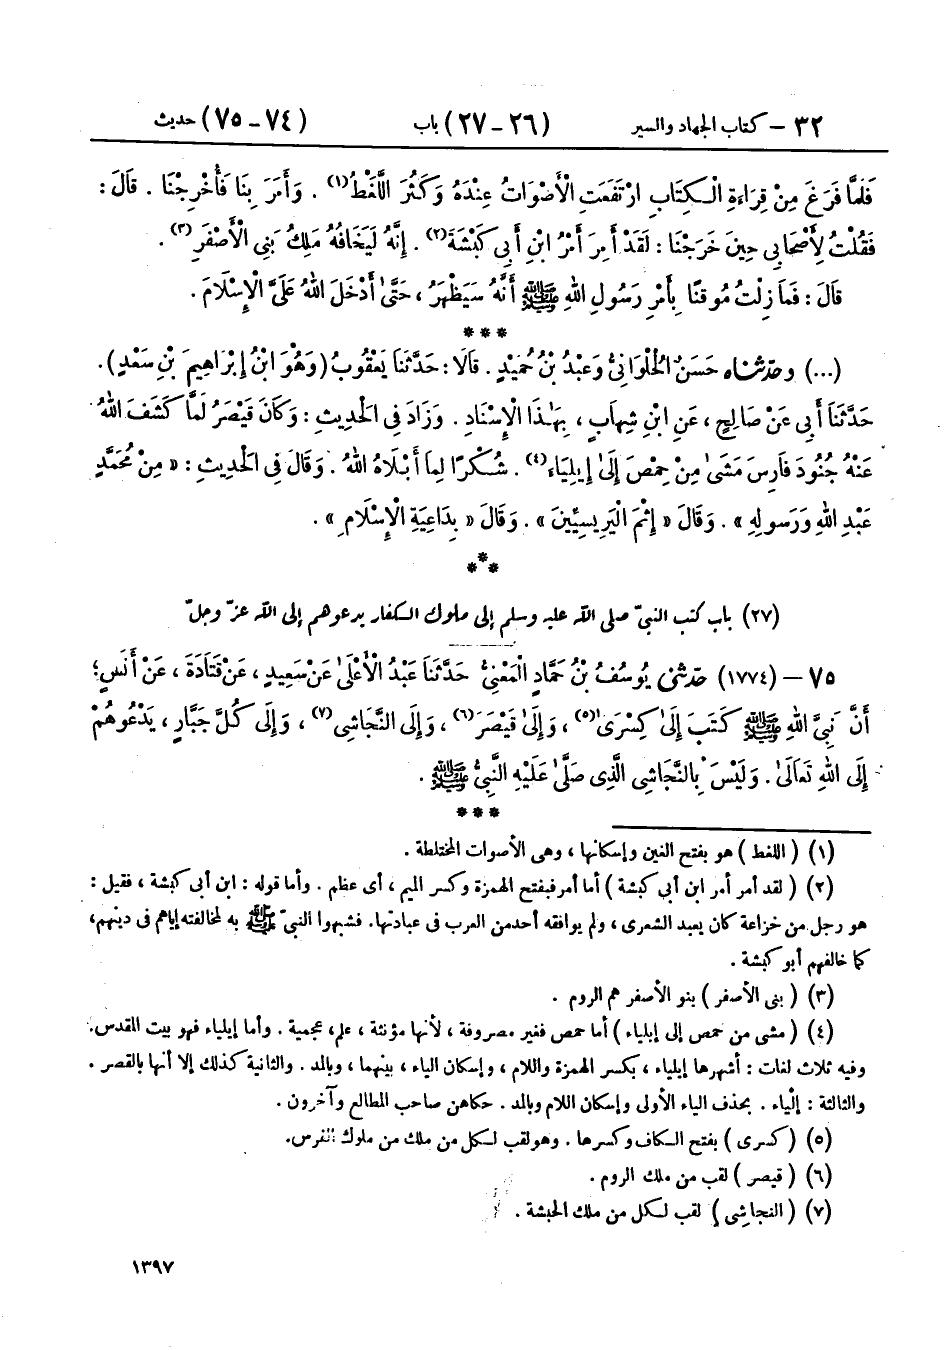 ٣٢ – كتاب الجهاد والسير (٢٦–٢٧) باب (٧٤–٧٥) حديث
فَلَمَّا فَرَغَ مِنْ قِرَاءَةِ الْكِتَابِ ارْتَفَعَتِ الْأَصْوَاتُ عِنْدَهُ وَكَثُرَ اللَّغَطُ(١) . وَأَمَرَ بِنَا فَأُخْرِجْنَا . قَالَ :
فَقُلْتُ لِأَصْحَابِي حِينَ خَرَجْنَا : لَقَدْ أَمِرَ أَمْرُ ابْنِ أَبِي كَبْشَةَ(٢) . إِنَّهُ لَيَخَافُهُ مَلِكُ بَنِي الْأَصْفَرِ(٣) .
قَالَ : فَمَا زِلْتُ مُوقِنًا بِأَمْرِ رَسُولِ اللهِ ﷺ أَنَّهُ سَيَظْهَرُ ، حَتَّىٰ أَدْخَلَ اللهُ عَلَيَّ الْإِسْلَامَ .
* * *
(...) وحدثناه حَسَنٌ الْحُلْوَانِيُّ وَعَبْدُ بْنُ حُمَيْدٍ . قَالَا : حَدَّثَنَا يَعْقُوبُ (وَهُوَ ابْنُ إِبْرَاهِيمَ بْنِ سَعْدٍ) .
حَدَّثَنَا أَبِي عَنْ صَالِحٍ ، عَنِ ابْنِ شِهَابٍ ، بِهَٰذَا الْإِسْنَادِ . وَزَادَ فِي الْحَدِيثِ : وَكَانَ قَيْصَرُ لَمَّا كَشَفَ اللهُ
عَنْهُ جُنُودَ فَارِسَ مَشَىٰ مِنْ حِمْصَ إِلَىٰ إِيلِيَاءَ(٤) . شُكْرًا لِمَا أَبْلَاهُ اللهُ . وَقَالَ فِي الْحَدِيثِ : « مِنْ مُحَمَّدٍ
عَبْدِ اللهِ وَرَسُولِهِ » . وَقَالَ « إِثْمَ الْيَرِيسِيِّينَ » . وَقَالَ « بِدَاعِيَةِ الْإِسْلَامِ » .
* * *
(٢٧) باب كتب النبيّ صلى الله عليه وسلم إلى ملوك الكفار يدعوهم إلى الله عزّ وجلّ
٧٥ – (١٧٧٤) حدثني يُوسُفُ بْنُ حَمَّادٍ الْمَعْنِيُّ حَدَّثَنَا عَبْدُ الْأَعْلَىٰ عَنْ سَعِيدٍ ، عَنْ قَتَادَةَ ، عَنْ أَنَسٍ ؛
أَنَّ نَبِيَّ اللهِ ﷺ كَتَبَ إِلَىٰ كِسْرَىٰ(٥) ، وَإِلَىٰ قَيْصَرَ(٦) ، وَإِلَى النَّجَاشِيِّ(٧) ، وَإِلَى كُلِّ جَبَّارٍ ، يَدْعُوهُمْ
إِلَى اللهِ تَعَالَىٰ . وَلَيْسَ بِالنَّجَاشِيِّ الَّذِي صَلَّىٰ عَلَيْهِ النَّبِيُّ ﷺ .
* * *
(١) ( اللغط ) هو بفتح الغين وإسكانها ، وهى الأصوات المختلطة .
(٢) ( لقد أمر أمر ابن أبى كبشة ) أما أمر فبفتح الهمزة وكسر الميم ، أى عظم . وأما قوله : ابن أبى كبشة ، فقيل :
هو رجل من خزاعة كان يعبد الشعرى ، ولم يوافقه أحد من العرب فى عبادتها . فشبهوا النبىّ ﷺ به لمخالفته إياهم فى دينهم،
كما خالفهم أبو كبشة .
(٣) ( بنى الأصفر ) بنو الأصفر هم الروم .
(٤) ( مشى من حمص إلى إيلياء ) أما حمص فغير مصروفة ، لأنها مؤنثة ، علم، عجمية . وأما إيلياء فهو بيت المقدس.
وفيه ثلاث لغات : أشهرها إيلياء ، بكسر الهمزة واللام ، وإسكان الياء ، بينهما ، وبالمد . والثانية كذلك إلا أنها بالقصر .
والثالثة : إلْياء . بحذف الياء الأولى وإسكان اللام وبالمد . حكاهن صاحب المطالع وآخرون .
(٥) ( كسرى ) بفتح الكاف وكسرها . وهو لقب لكل من ملك من ملوك الفرس.
(٦) ( قيصر ) لقب من ملك الروم .
(٧) ( النجاشى ) لقب لكل من ملك الحبشة .
١٣٩٧